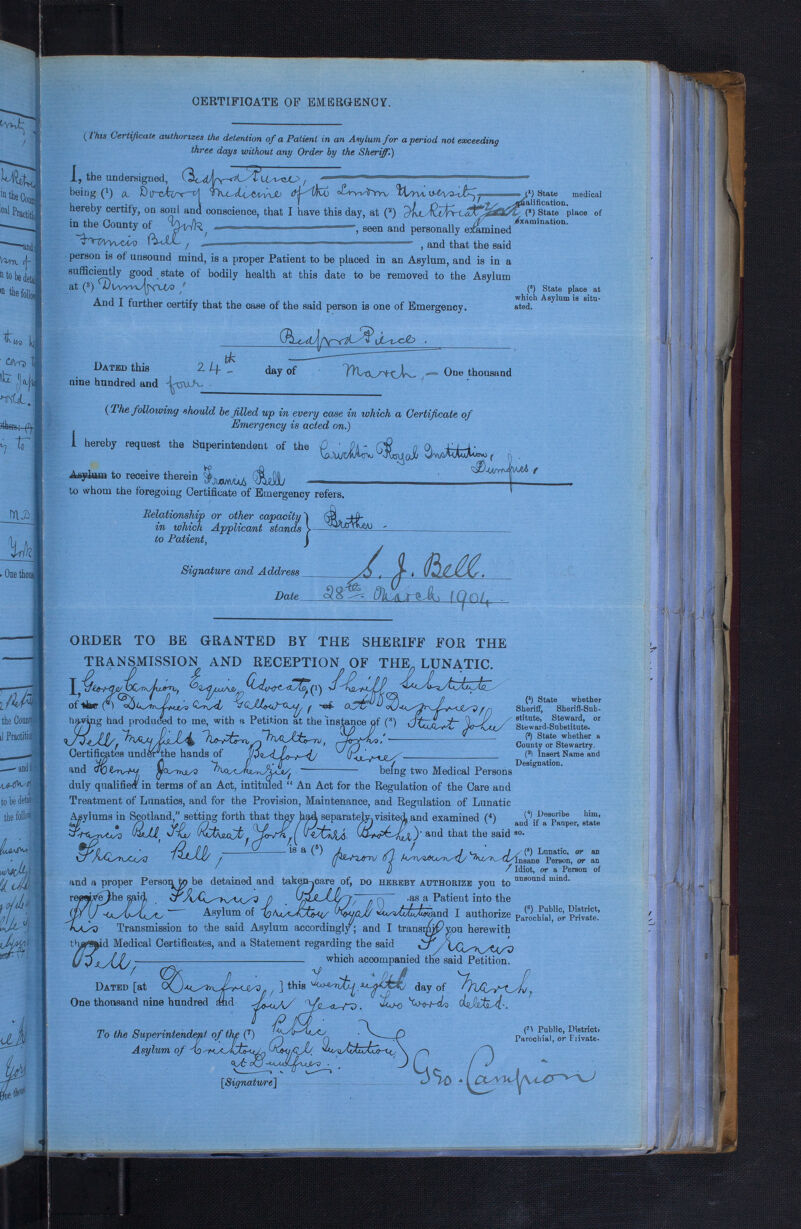 CERTIFICATE OF EMERGENCY.
(This Certificate authorizes the detention of a Patient in an Asylum for a period not exceeding
three days without any Order by the Sheriff.)
I, the undersigned, Bedford Pierce,
being (1) a Doctor of Medicine of the London University,
(1) State medical qualification.
hereby certify, on soul and conscience, that I have this day, at (2) The Retreat York
(2) State place of examination.
in the County of York, , seen and personally examined
Francis Bell, , and that the said
person is of unsound mind, is a proper Patient to be placed in an Asylum, and is in a
sufficiently good state of bodily health at this date to be removed to the Asylum
at (3) Dumfries.
(3) State place at
which Asylum is situ-
ated.
And I further certify that the case of the said person is one of Emergency.
Bedford Pierce.
DATED this 24th day of March, — One thousand
nine hundred and four.
(The following should be filled up in every case in which a Certificate of
Emergency is acted on.)
I hereby request the Superintendent of the Crichton Royal Institution,
Dumfries,
Asylum to receive therein Francis Bell
to whom the foregoing Certificate of Emergency refers.
Relationship or other capacity
in which Applicant stands Brother
to Patient,
Signature and Address S. J. Bell.
Date 28th March 1904
ORDER TO BE GRANTED BY THE SHERIFF FOR THE
TRANSMISSION AND RECEPTION OF THE LUNATIC.
I, George Campion, Esquire, Advocate, (1) Sheriff Substitute
of the (2) Dumfries and Galloway, at Dumfries,
(1) State whether
Sheriff, Sheriff-Sub-
stitute, Steward, or
Steward-Substitute.
(2) State whether a
County or Stewartry.
(3) Insert Name and
Designation.
having had produced to me, with a Petition at the instance of (3) Stuart John
Bell, Mayfield Norton, Malton, Yorks.
Certificates under the hands of Bedford Pierce
and Henry James Mackenzie, being two Medical Persons
duly qualified in terms of an Act, intituled "An Act for the Regulation of the Care and
Treatment of Lunatics, and for the Provision, Maintenance, and Regulation of Lunatic
Asylums in Scotland," setting forth that they had separately visited and examined (4)
(4) Describe him,
and if a Pauper, state
so.
Francis Bell, The Retreat, York, (Petrs Brother) and that the said
Francis Bell, is a (5) person of unsound mind
(5) Lunatic, or an
Insane Person, or an
Idiot, or a Person of
unsound mind.
and a proper Person to be detained and taken care of, DO HEREBY AUTHORIZE you to
receive the said Francis Bell, as a Patient into the
(6) Public Asylum of Crichton Royal Institution and I authorize
(6) Public, District,
Parochial, or Private.
his Transmission to the said Asylum accordingly; and I transmit you herewith
the said Medical Certificates, and a Statement regarding the said Francis
Bell, which accompanied the said Petition.
DATED [at Dumfries, ] this twenty eighth day of March,
One thousand nine hundred and four years. Two words deleted.
To the Superintendent of the (7) Public
(7) Public, District,
Parochial, or Private.
Asylum of Crichton Royal Institution
at Dumfries.
[Signature] Geo. Campion